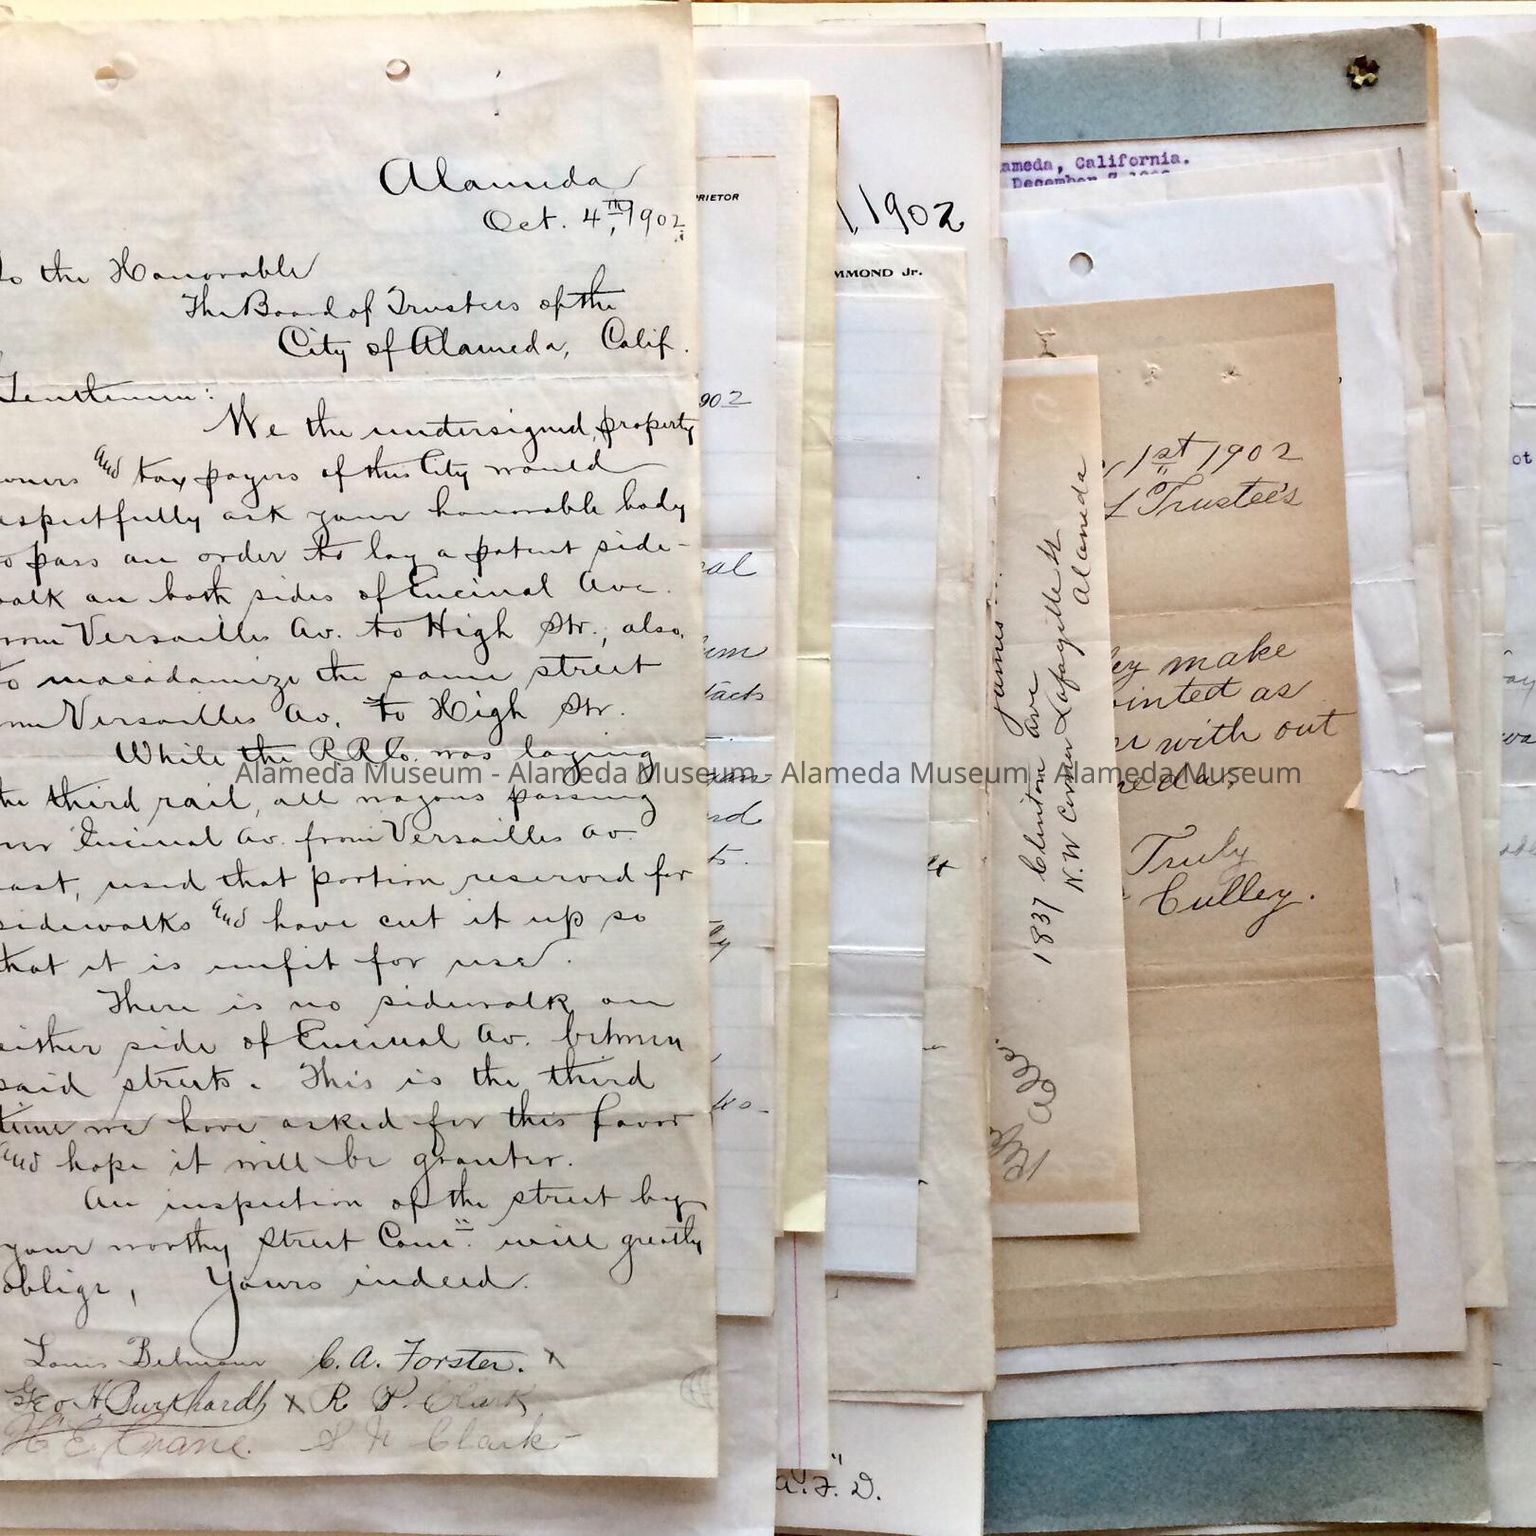 Alameda
Oct. 4th, 1902.
To the Honorable
The Board of Trustees of the
City of Alameda, Calif.
Gentlemen:
We the undersigned, property
owners and tax payers of this City would
respectfully ask your honorable body
to pass an order to lay a patent side-
walk on both sides of Encinal Ave.
from Versailles Av. to High Str., also,
to macadamize the same street
from Versailles Av. to High Str.
While the R.R.Co. was laying
the third rail, all wagons passing
on Encinal Av. from Versailles Av.
east, used that portion reserved for
sidewalks and have cut it up so
that it is unfit for use.
There is no sidewalk on
either side of Encinal Av. between
said streets. This is the third
time we have asked for this favor
and hope it will be granter.
An inspection of the street by
your worthy Street Com". will greatly
oblige, Yours indeed.
Louis C. A. Forster. x
Geo H Burkhardt x R P. Clark
H E Crane. Clark
RIETOR
902
tacts
, 1902
MMOND Jr.
a. F. D.
ameda, California.
December
1837 Clinton Ave
N.W Corner Lafayette St
Alameda
1st 1902
Trustee's
make
ointed as
with out
eda.
Truly
Culley.
ot
Alameda Museum - Alameda Museum - Alameda Museum - Alameda Museum